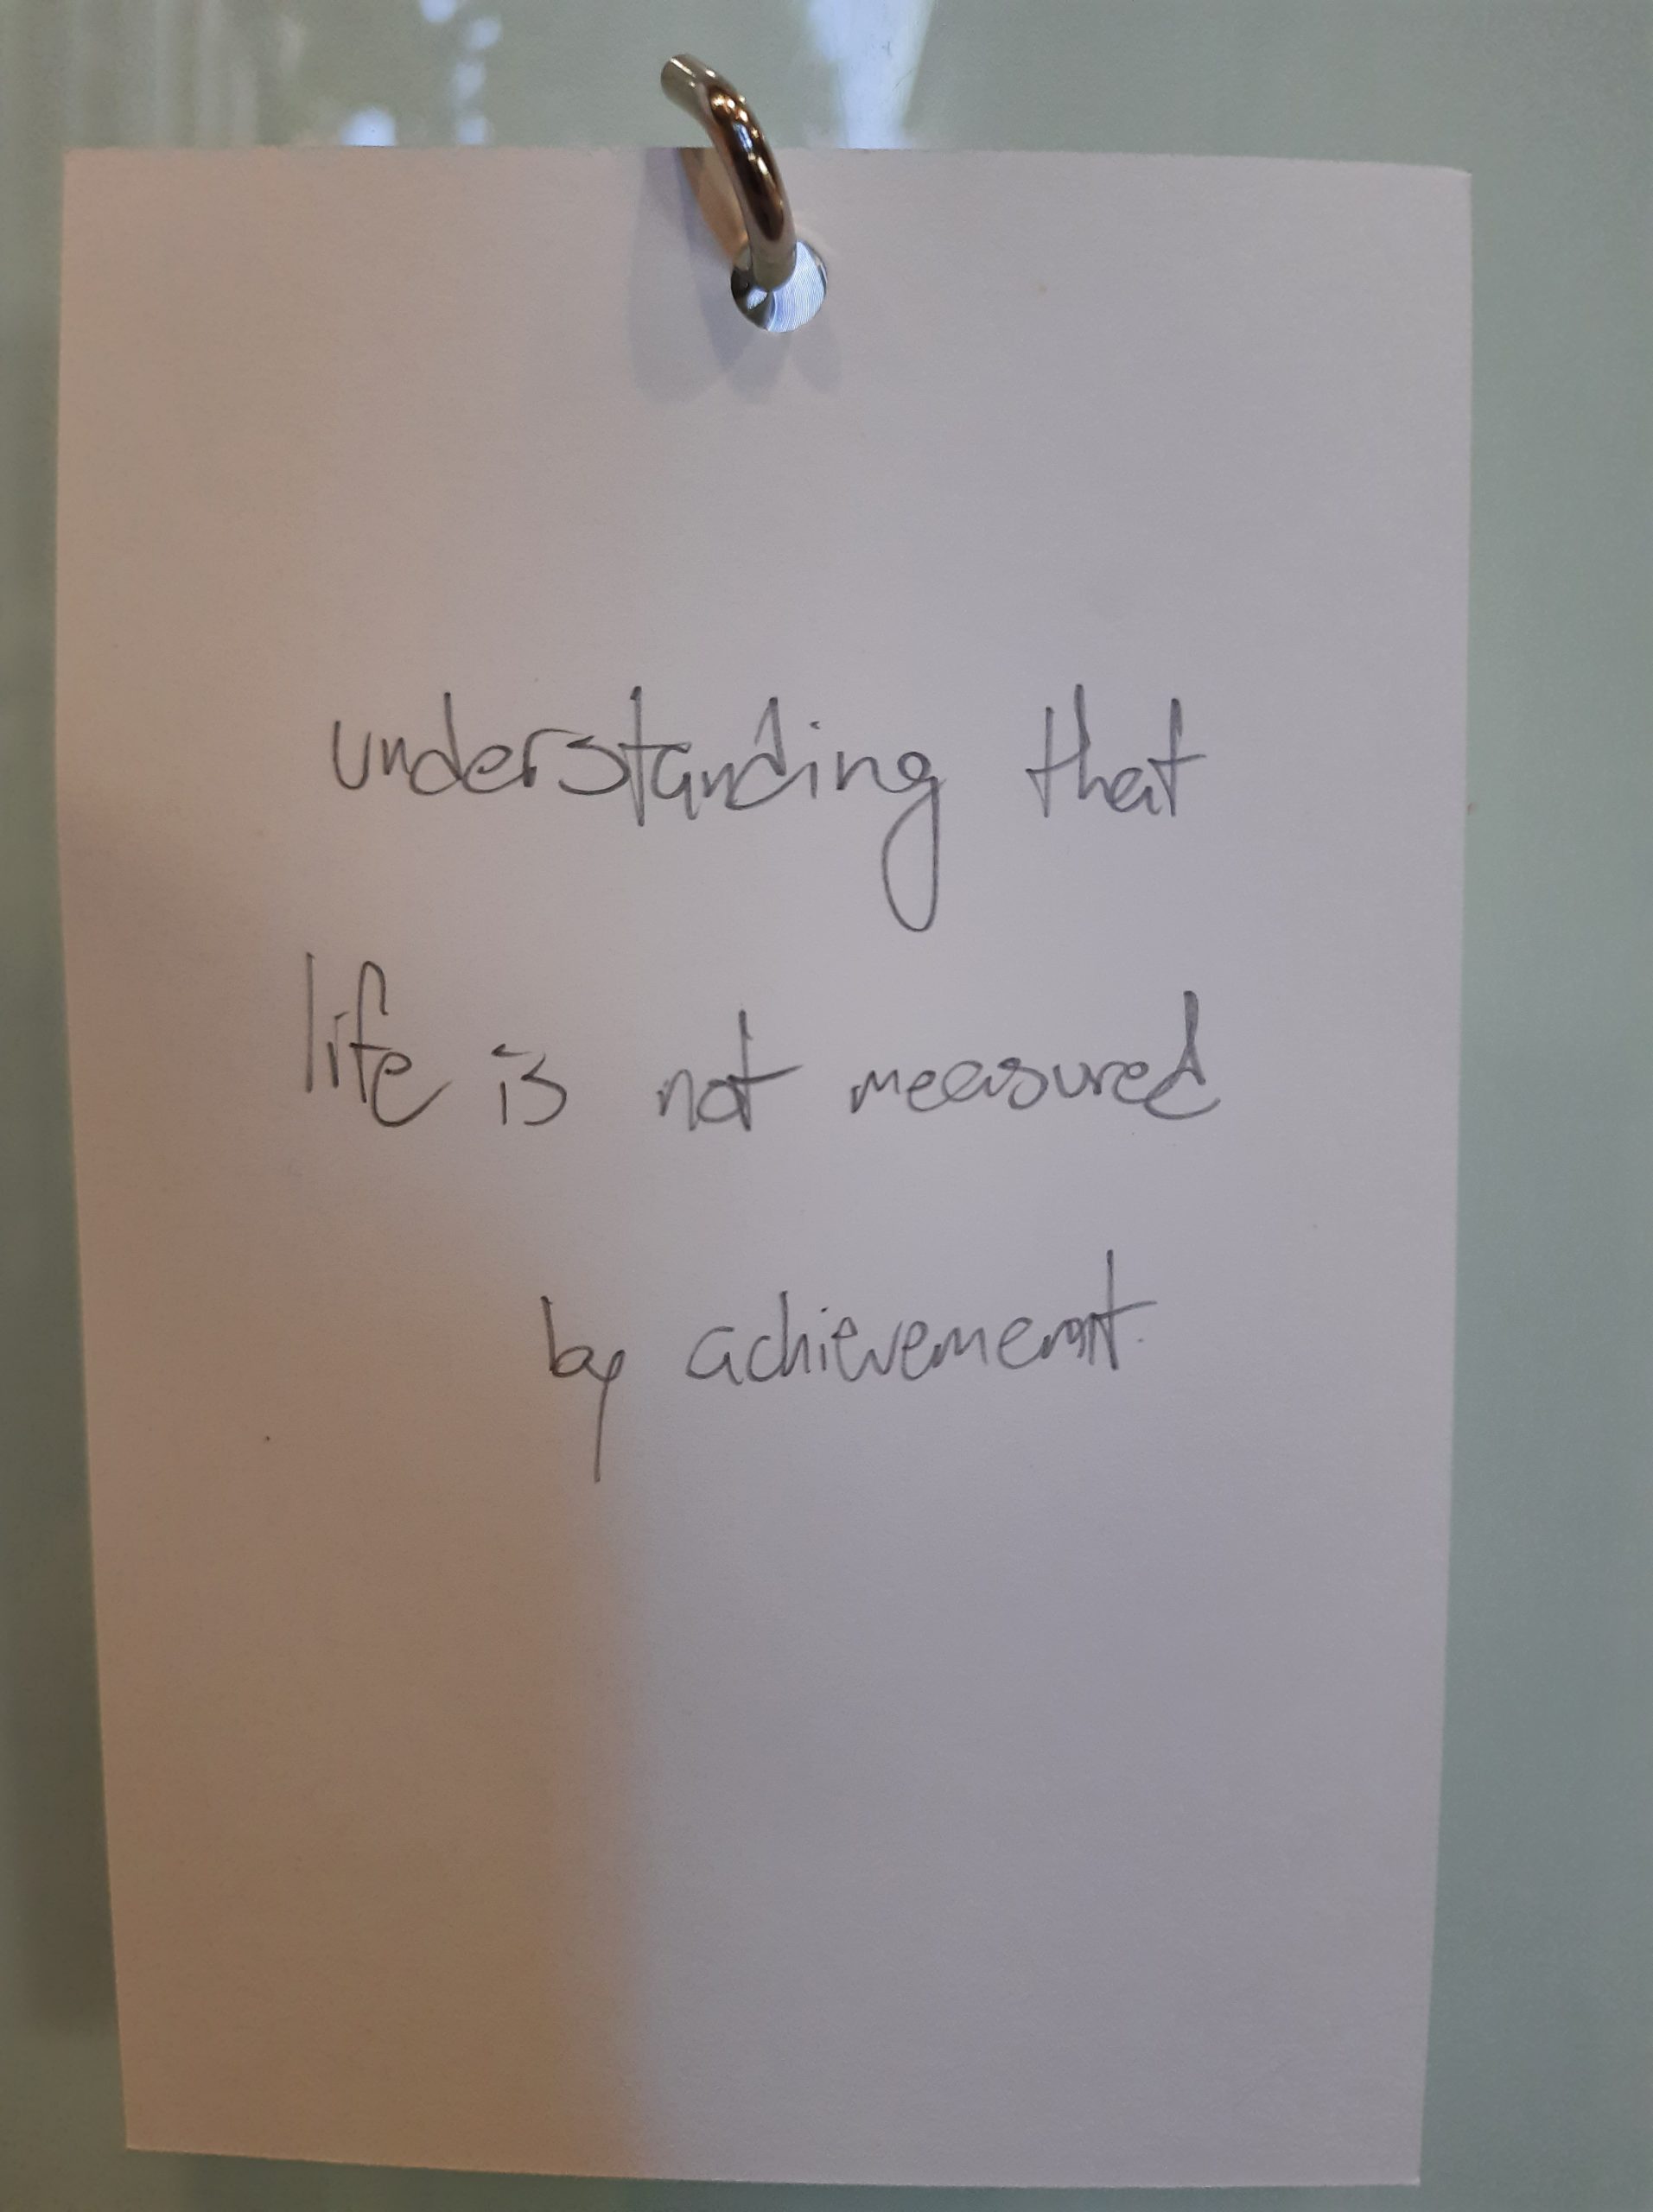 understanding that
life is not measured
by achievement.